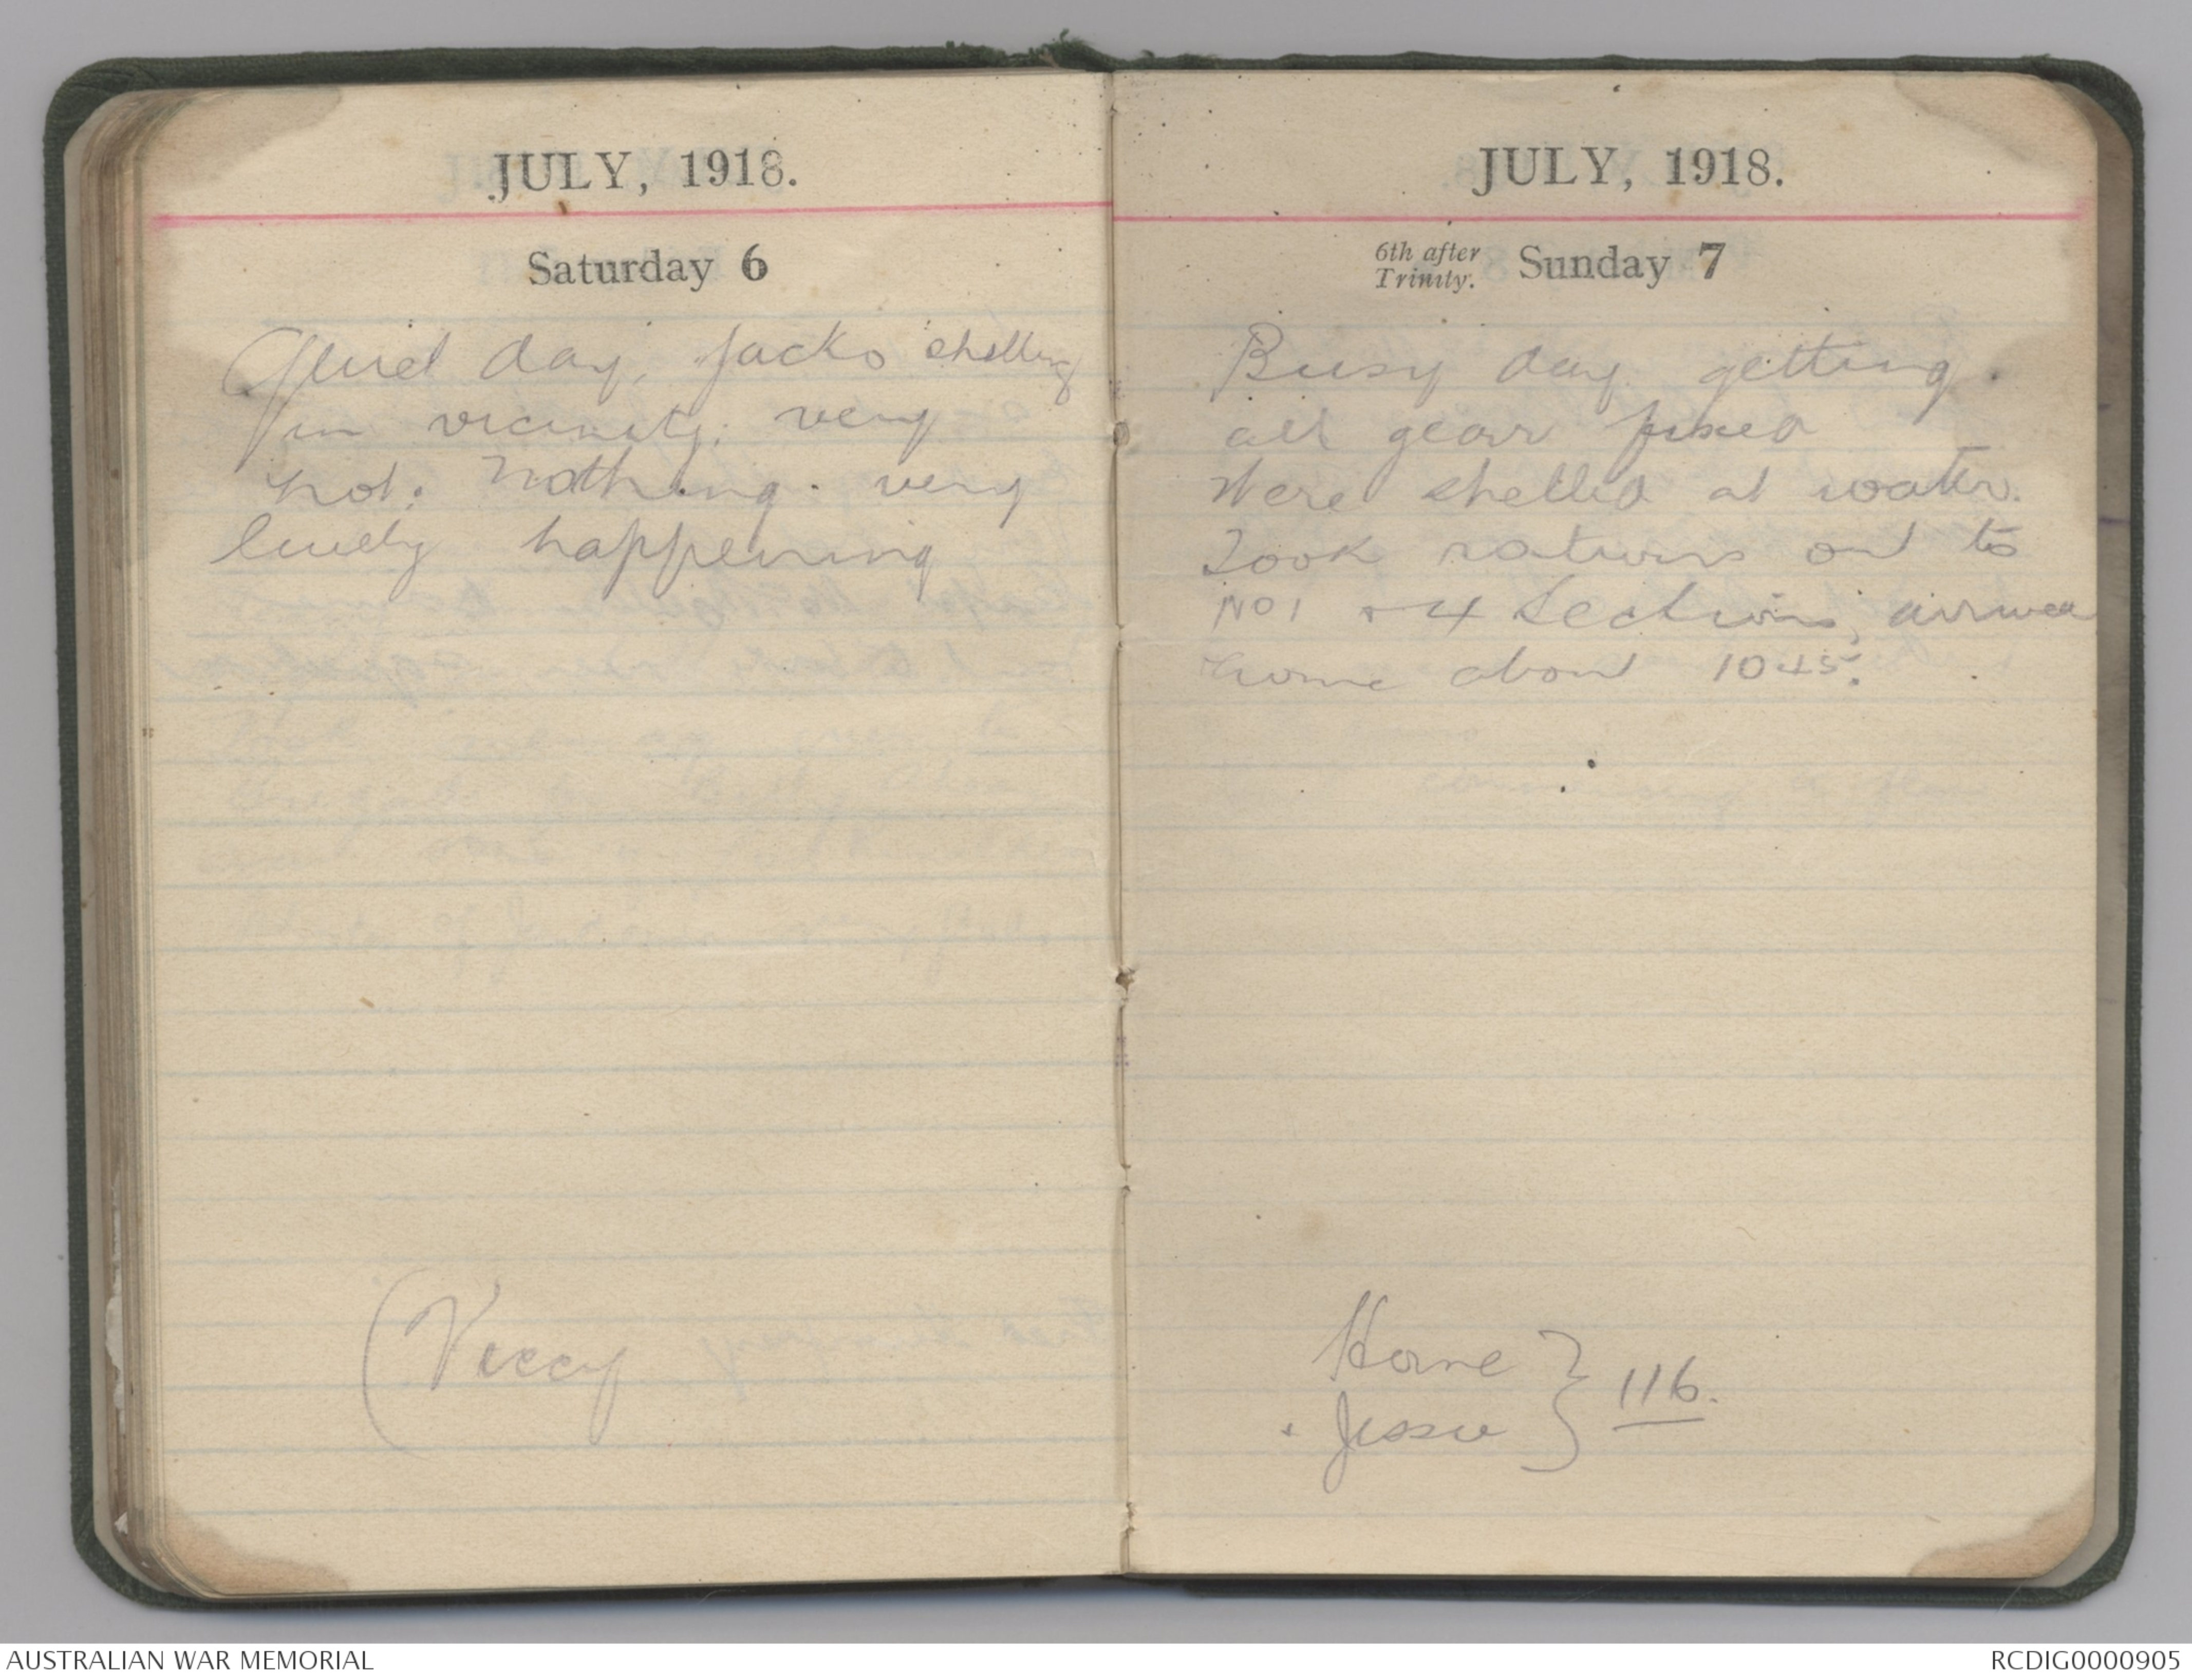 JULY, 1918.
Saturday 6
Quiet day, Jacko shelling
in vicinity. very
hot. Nothing very
lively happening
(Veccy
JULY, 1918.
6th after
Trinity. Sunday 7
Busy day getting
all gear fixed
Were shelled at water.
Took rations out to
No 1 & 4 Sections, arrived
home about 1045.
Home
Jessie } 116.
AUSTRALIAN WAR MEMORIAL
RCDIG0000905